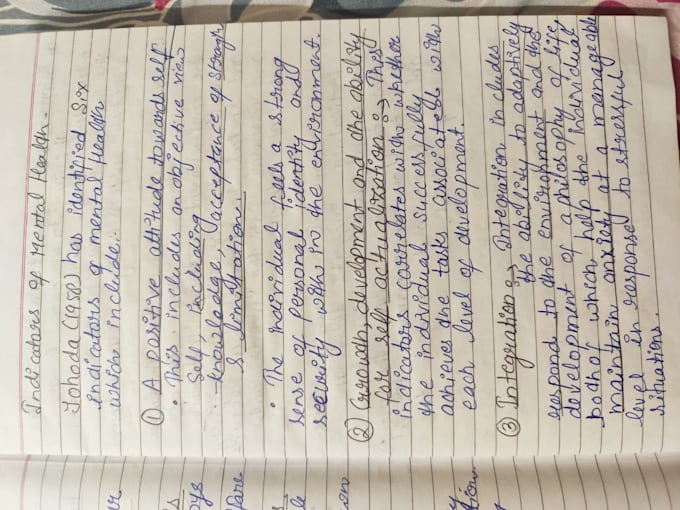 Indicators of Mental Health -
Jahoda (1958) has identified Six
indicators of mental Health
which include:
① A positive attitude towards self
• This includes an objective view
Self, including
knowledge, acceptance of strength
& limitation.
• The individual feels a strong
sense of personal identity and
security with in the environment.
② Growth, development and the ability
for self actualization :→ This
indicators correlates with whether
the individual successfully
achieves the tasks associated with
each level of development.
③ Integration :→ Integration includes
the ability to adaptively
respond to the environment and the
development of a philosophy of life,
both of which help the individual
maintain anxiety at a manageable
level in response to stressful
situations.